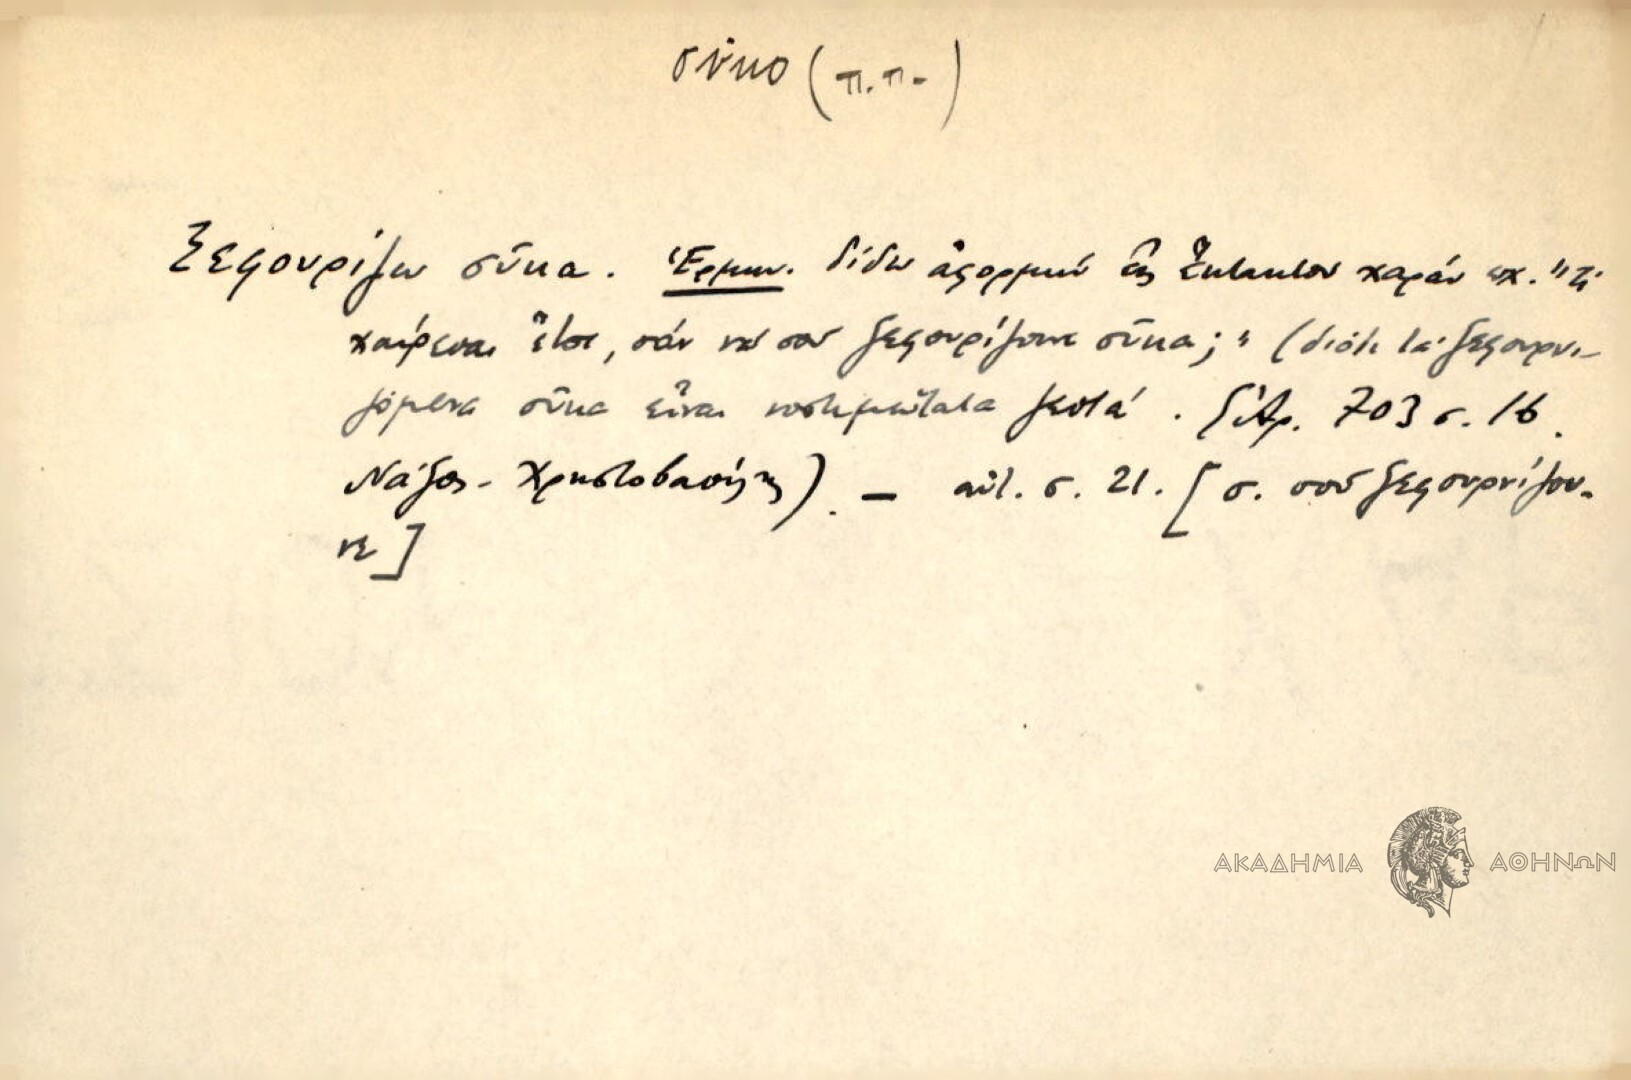 σῦκο (π.π.)
Ξεφουρίζω σῦκα. Ἑρμην. δίδω ἀφορμήν εἰς ἔκτακτον χαράν πχ. "τί
χαίρεσαι ἔτσι, σάν νά σοῦ ξεφουρίζουνε σῦκα;" (διότι τά ξεφουρνι-
ζόμενα σῦκα εἶναι νοστιμώτατα ζεστά. [Ἀρ. 703 σ. 16
Νάξος - Χρηστοβασίλης). — αὐτ. σ. 21. [σ. σοῦ ξεφουρνίζου-
νε]
ΑΚΑΔΗΜΙΑ ΑΘΗΝΩΝ